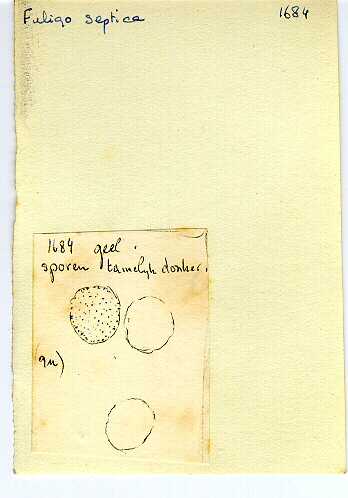 Fuligo septica 1684
1684 geel.
sporen tamelijk donker.
(9μ)